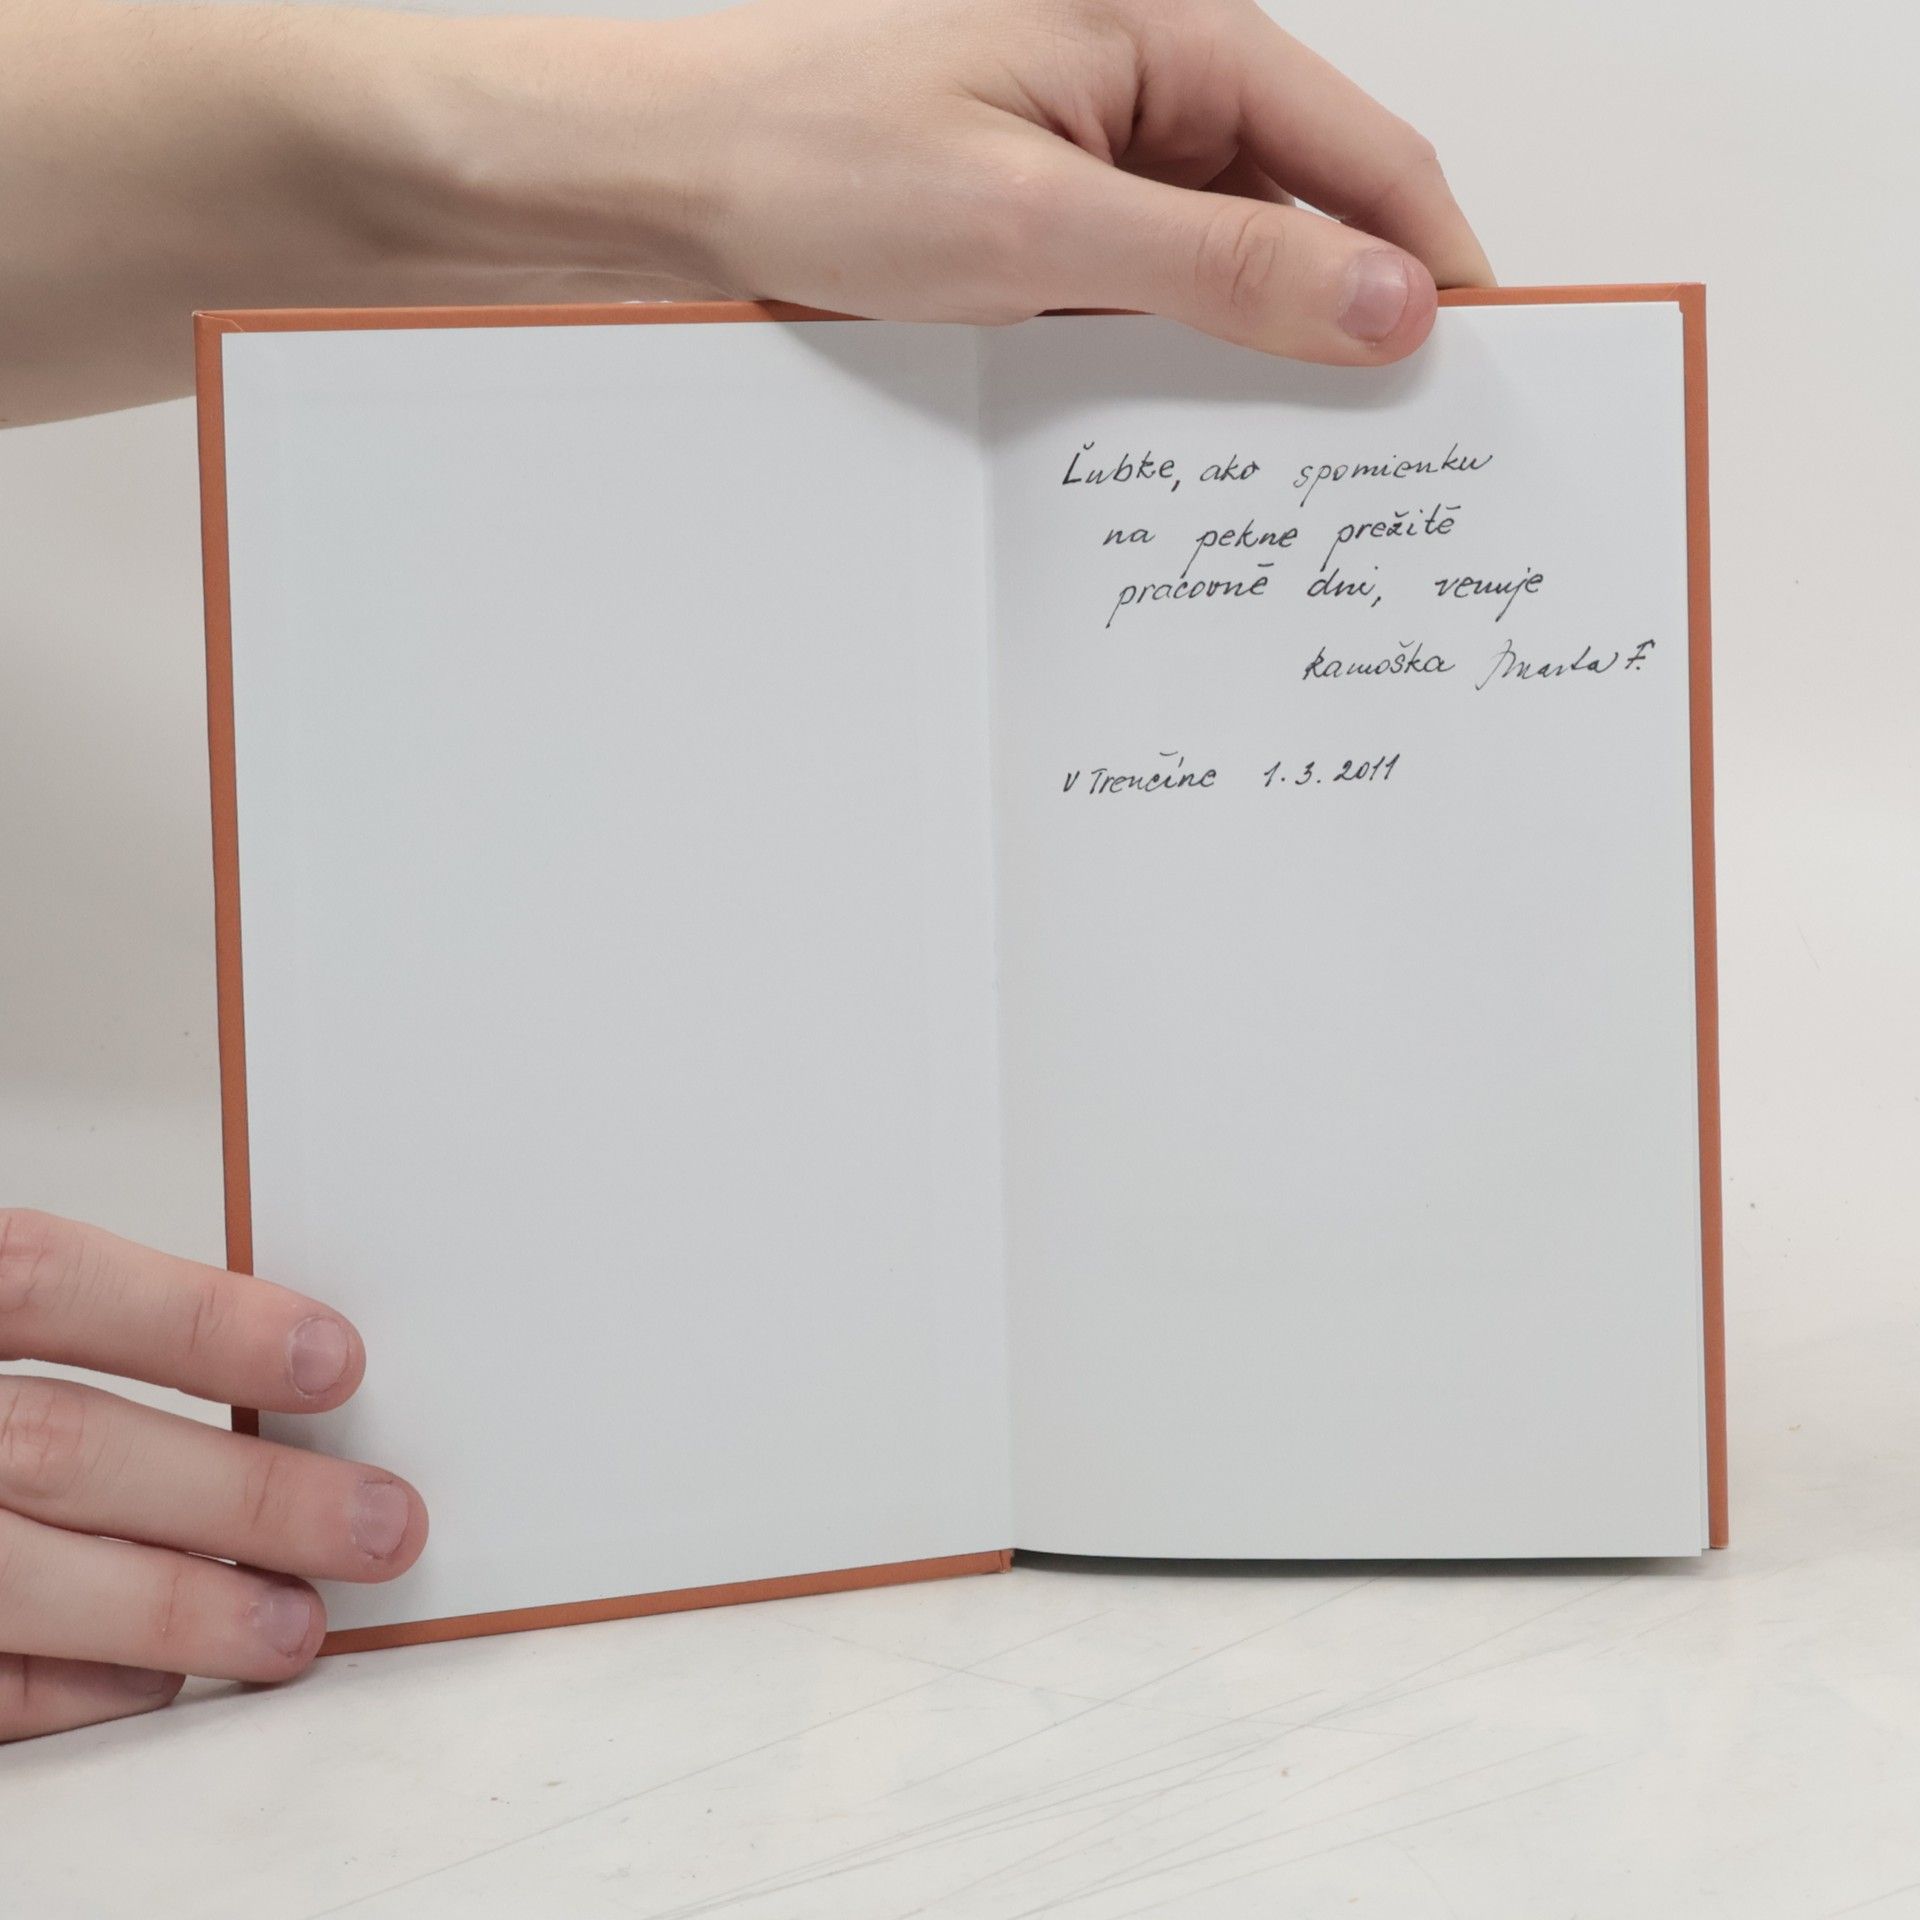 Ľubke, ako spomienku
na pekne prežité
pracovné dni, venuje
kamoška Marta F.
V Trenčíne 1.3.2011